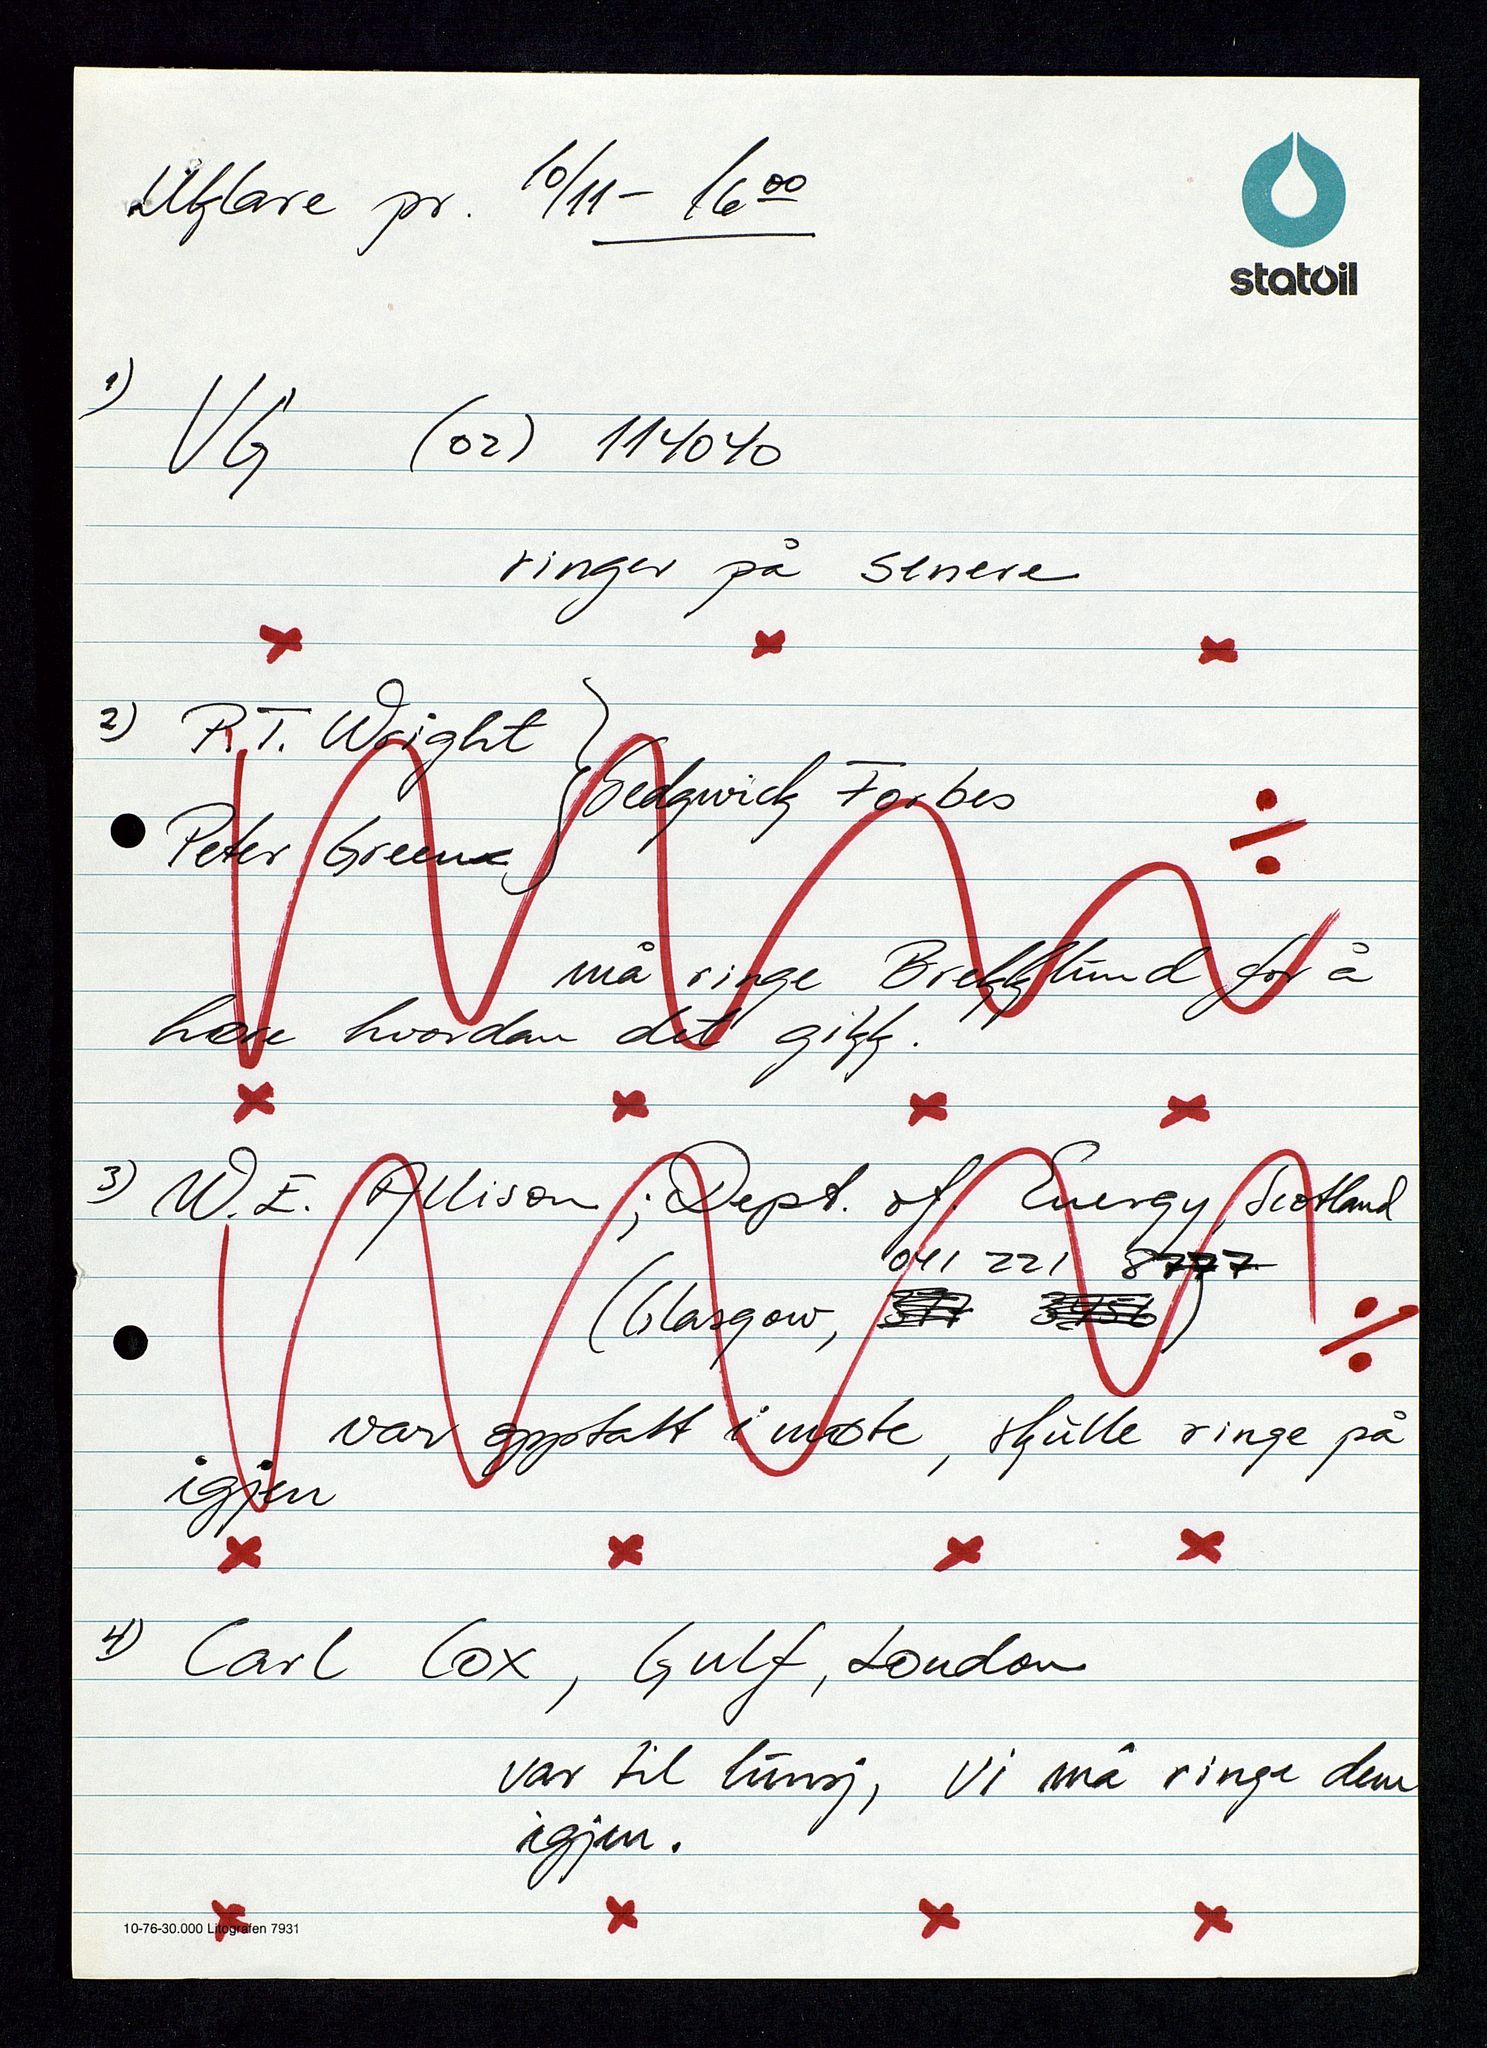 Uklare pr. 10/11 - 16 00
statoil
1) VG (02) 114040
ringer på senere
2) R.T. Wright
Sedgwick Forbes
Peter Greene
må ringe Brekklund for å
høre hvordan det gikk.
3) W.E. Allison ; Dept. of. Energy, Scotland
041 221 8777
(Glasgow, )
var opptatt i møte, skulle ringe på
igjen
4) Carl Cox, Gulf, London
var til lunsj, vi må ringe dem
igjen.
10-76-30.000 Litografen 7931